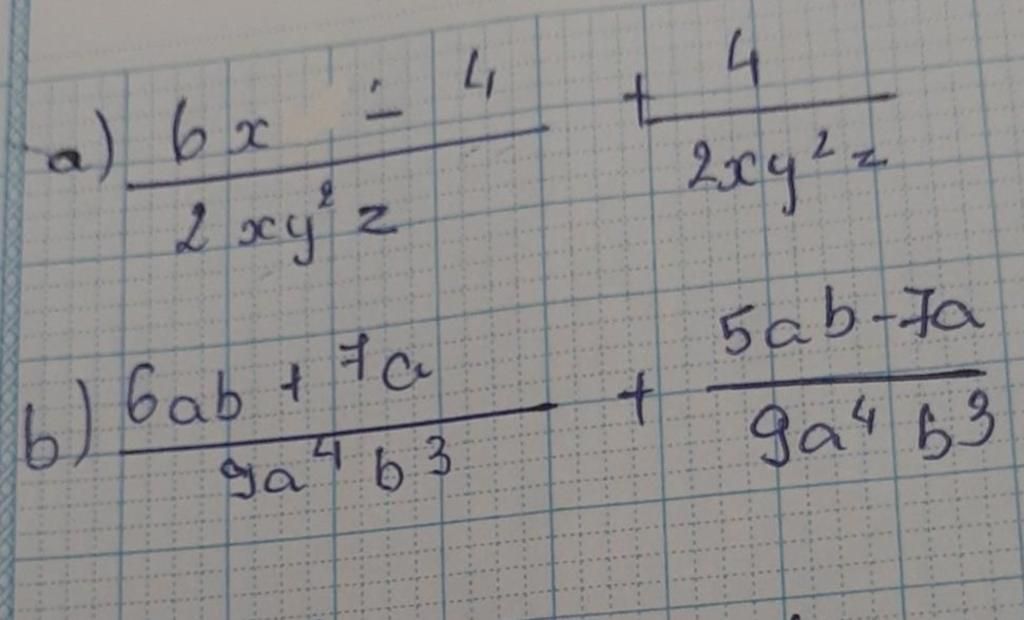 a) \frac{6x ÷ 4}{2xy^2 z} + \frac{4}{2xy^2 z}
b) \frac{6ab + 7a}{9a^4 b^3} + \frac{5ab - 7a}{9a^4 b^3}